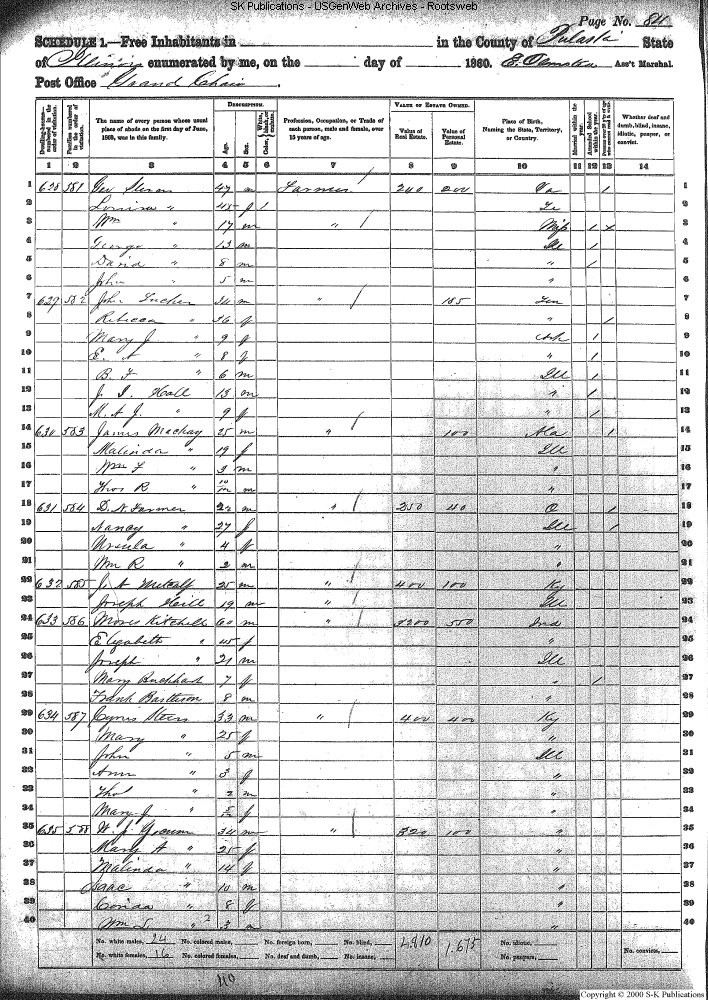 SK Publications - USGenWeb Archives - Rootsweb
Page No. 84
SCHEDULE 1.—Free Inhabitants in in the County of Pulaski State
of Illinois enumerated by me, on the day of 1860. E. Olmsted Ass't Marshal.
Post Office Grand Chain
Dwelling-houses—numbered in the order of visitation. Families numbered in the order of visitation. The name of every person whose usual place of abode on the first day of June, 1860, was in this family. DESCRIPTION. Age. Sex. Color, White, black, or mulatto. Profession, Occupation, or Trade of each person, male and female, over 15 years of age. VALUE OF ESTATE OWNED. Value of Real Estate. Value of Personal Estate. Place of Birth, Naming the State, Territory, or Country. Married within the year. Attended School within the year. Whether deaf and dumb, blind, insane, idiotic, pauper, or convict.
1 2 3 4 5 6 7 8 9 10 11 12 13 14
1 628 581 47 m Farmer 240 200 / 1
2 Louisa " 45 f Te 2
3 Wm " 17 m " Miss / x 3
4 George " 13 m Ill / 4
5 David " 8 m " / 5
6 John " 5 m " 6
7 629 582 John Tucker 34 m " 185 Ten 7
8 Rebecca " 36 f " / 8
9 Mary J " 9 f Ark / 9
10 E. A " 8 f " / 10
11 B. F " 6 m Ill / 11
12 J. I. Hall 13 m " / 12
13 M. A. J. " 9 f " / 13
14 630 583 James Mackay 25 m " 100 Ala / 14
15 Malinda " 19 f Ill 15
16 Wm F " 3 m " 16
17 Thos R " 10/12 m " 17
18 631 584 D. N Farmer 22 m " 250 40 O / 18
19 Nancy " 27 f Ill / 19
20 Ursula " 4 f " 20
21 Wm R " 2 m " 21
22 632 585 J. A Metcalf 25 m " 400 100 Ky 22
23 Joseph Hill 19 m " Ill 23
24 633 586 Moses Kitchell 60 m " 3200 550 Ind 24
25 Elizabeth " 45 f " 25
26 Joseph " 21 m Ill 26
27 Mary 7 f " / 27
28 Frank 8 m " 28
29 634 587 Cyrus Steers 33 m " 400 400 Ky 29
30 Mary " 25 f " 30
31 John " 5 m Ill 31
32 Ann " 3 f " 32
33 Thos " 2 m " 33
34 Mary J " f " 34
35 635 588 W. J. 34 m " 320 100 " 35
36 Mary A " 25 f " 36
37 Malinda " 14 f " 37
38 Isaac " 10 m " 38
39 8 f " 39
40 Wm S " 3 m " 40
No. white males, 24 No. colored males, No. foreign born, No. blind, 4,810 1,675 No. idiotic,
No. white females, 16 No. colored females, No. deaf and dumb, No. insane, No. paupers, No. convicts,
40
Copyright © 2000 S-K Publications